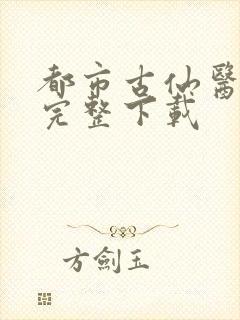 都市古仙醫
完整下載
方劍玉